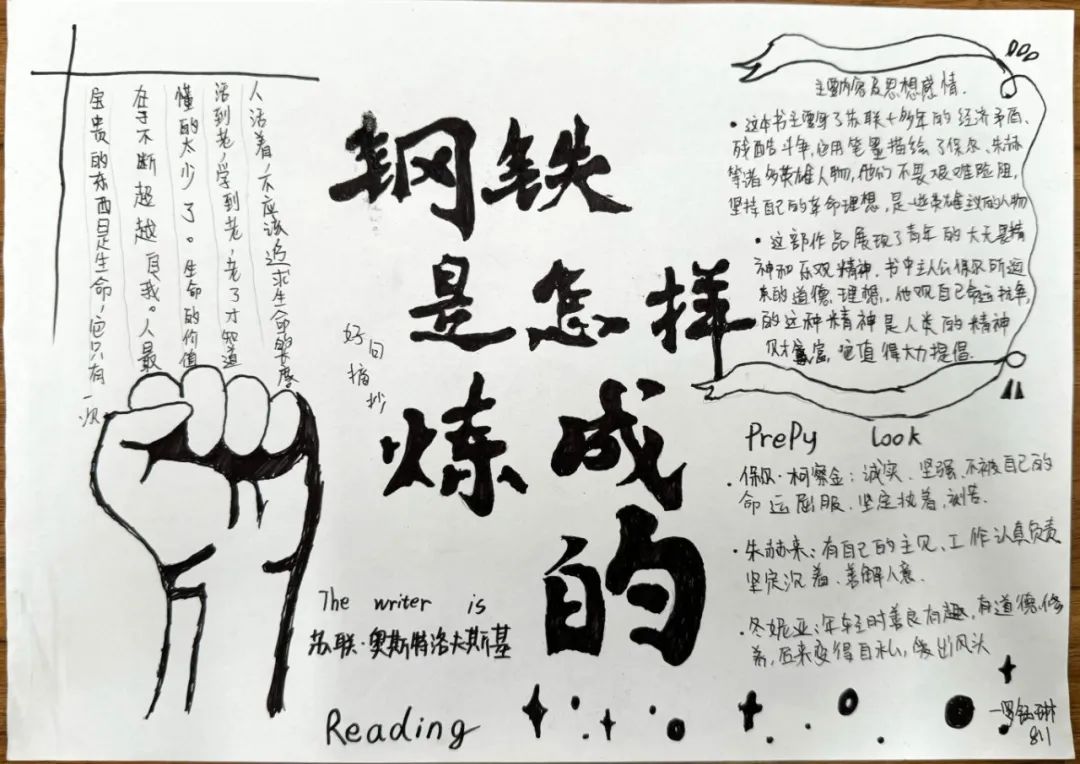 钢铁
是怎样
炼成
的
人活着,不应该追求生命的长度
活到老,学到老,老了才知道
懂的太少了。生命的价值
在于不断超越自我。人最
宝贵的东西是生命,它只有
一次
好句
摘抄
The writer is
苏联·奥斯特洛夫斯基
Reading
主要内容及思想感情.
·这本书主要写了苏联十多年的经济矛盾、
残酷斗争,用笔墨描绘了保尔、朱赫
等诸多英雄人物,他们不畏艰难险阻,
坚持自己的革命理想,是一些英雄主义的人物
·这部作品展现了青年的大无畏精
神和乐观精神.书中主人公保尔所追
求的道德、理想,他观自己命运抗争,
的这种精神是人类的精神
财富,值得大力提倡.
PrePy look
·保尔·柯察金:诚实、坚强、不被自己的
命运屈服、坚定执着,刻苦.
·朱赫来:有自己的主见、工作认真负责
坚定沉着、善解人意.
·冬妮亚:年轻时善良有趣,有道德,修
养,后来变得自私,爱出风头
811